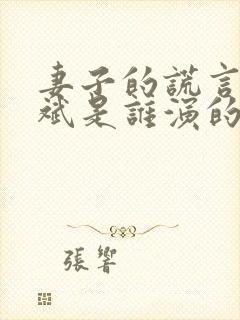 妻子的謊言
斌是誰演的
張響